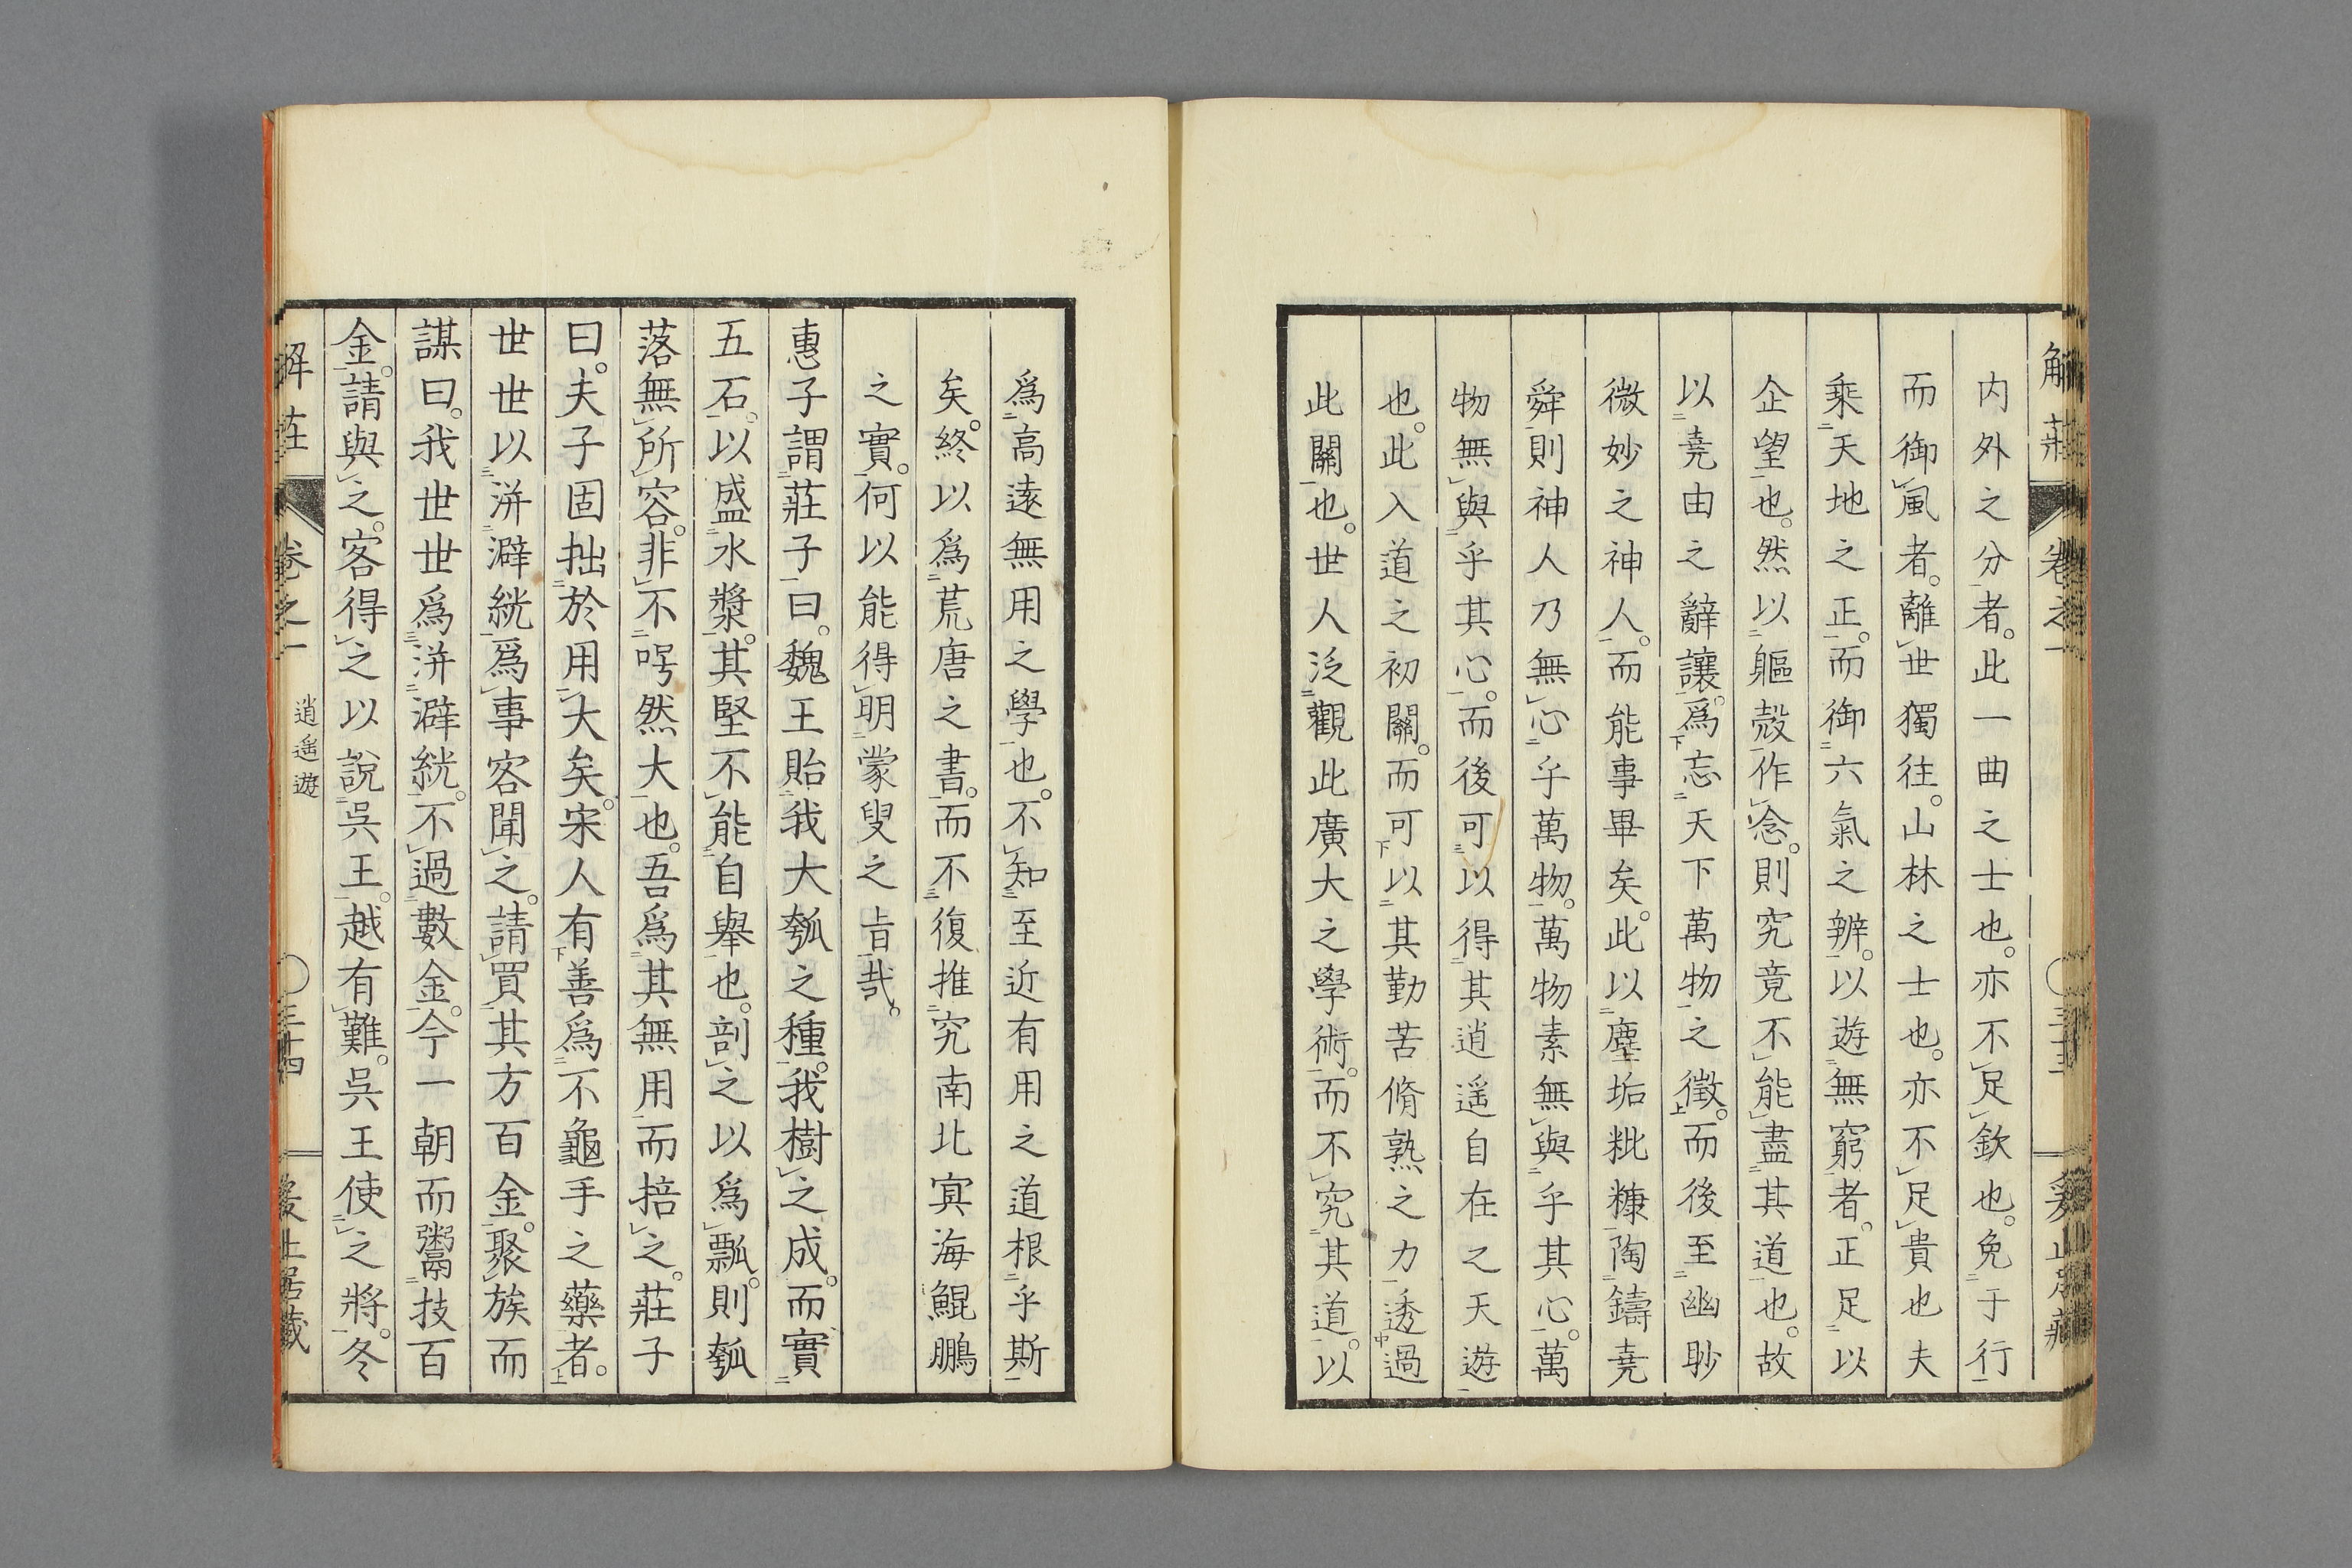 解莊 卷之一 三十三
内外之分者。此一曲之士也。亦不足欽也。免于行
而御風者。離世獨往。山林之士也。亦不足貴也夫
乘天地之正。而御六氣之辨。以遊無窮者。正足以
企望也。然以軀殼作念。則究竟不能盡其道也。故
以堯由之辭讓。爲忘天下萬物之徵。而後至幽眇
微妙之神人。而能事畢矣。此以塵垢粃糠陶鑄堯
舜則神人乃無心乎萬物。萬物素無與乎其心。萬
物無與乎其心。而後可以得其逍遥自在之天遊
也。此入道之初關。而可以其勤苦脩熟之力透過
此關也。世人泛觀此廣大之學術。而不究其道。以
爲高遠無用之學也。不知至近有用之道根乎斯
矣。終以爲荒唐之書。而不復推究南北冥海鯤鵬
之實。何以能得明蒙叟之旨哉。
惠子謂莊子曰。魏王貽我大瓠之種。我樹之成。而實
五石。以盛水漿。其堅不能自舉也。剖之以爲瓢。則瓠
落無所容。非不呺然大也。吾爲其無用而掊之。莊子
曰。夫子固拙於用大矣。宋人有善爲不龜手之藥者。
世世以洴澼絖爲事客聞之。請買其方百金。聚族而
謀曰。我世世爲洴澼絖。不過數金。今一朝而鬻技百
金。請與之。客得之以說吳王。越有難。吳王使之將。冬
解莊 卷之一 逍遥遊 三十四